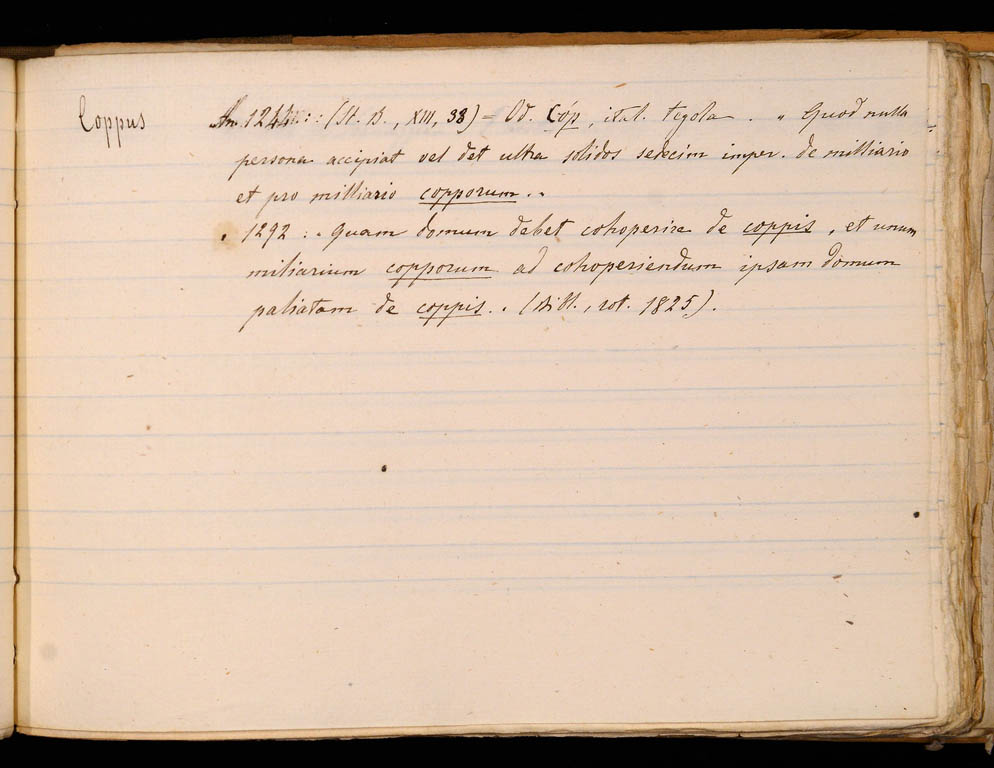 Coppus An. 1244 : : (St. B., XIII, 38) = Od. Cóp, ital. tegola. " Quod nulla
persona accipiat vel det ultra solidos sedecim imper. de milliario
et pro milliario copporum. "
" 1292 : " Quam domum debet cohoperire de coppis, et unum
miliarium copporum ad cohoperiendum ipsam domum
paliatam de coppis. " (Bibl., rot. 1825).